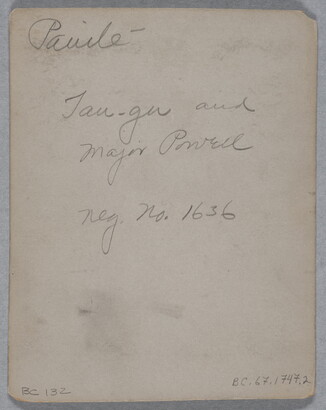 Paiute
Tau-gu and
Major Powell
Neg. No. 1636
BC 132
BC.67.1797.2